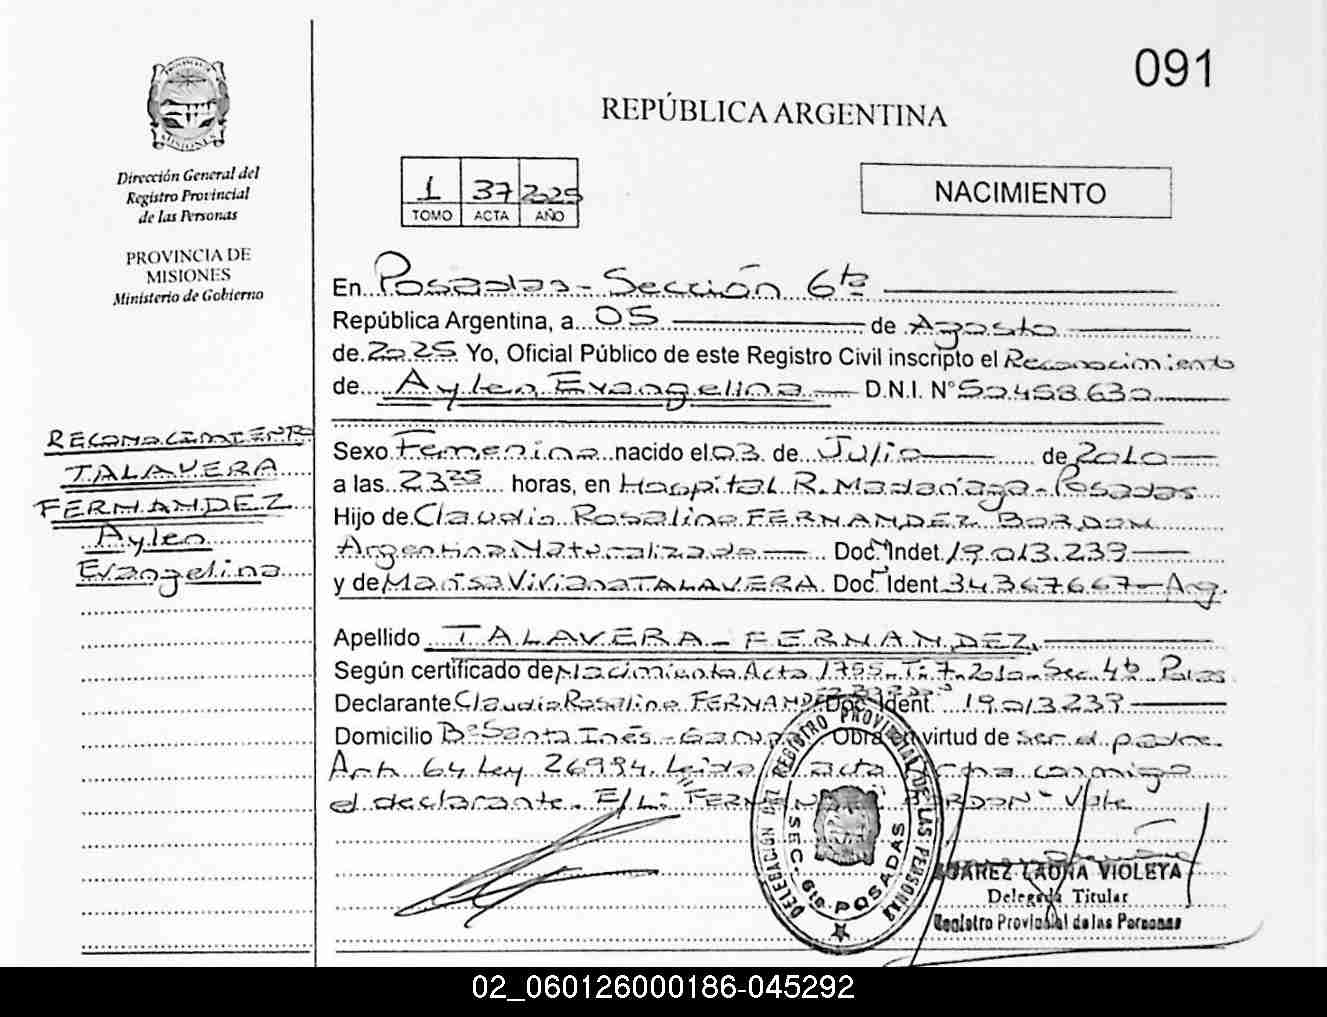 091
REPÚBLICA ARGENTINA
PROVINCIA DE
MISIONES
Dirección General del
Registro Provincial
de las Personas
PROVINCIA DE
MISIONES
Ministerio de Gobierno
1 37 2025
TOMO ACTA AÑO
NACIMIENTO
En Posadas - Sección 6ta
República Argentina, a 05 de Agosto
de 2025 Yo, Oficial Público de este Registro Civil inscripto el Reconocimiento
de Aylen Evangelina D.N.I. N° 50.458.630
RECONOCIMIENTO
TALAVERA
FERNANDEZ
Aylen
Evangelina
Sexo Femenino nacido el 03 de Julio de 2010
a las 23 25 horas, en Hospital R. Madariaga - Posadas
Hijo de Claudio Rosalino FERNANDEZ BORDON
Argentino Naturalizado Doc. Indet. 19.013.239
y de Marisa Viviana TALAVERA Doc. Ident. 34367667 - Arg.
Apellido TALAVERA - FERNANDEZ.
Según certificado de Nacimiento Acta 1755 - T: 7 - 2010 - Sec. 4ta Pdas
Declarante Claudio Rosalino FERNANDEZ Doc. Ident. 19.013.239
Domicilio B° Santa Inés - Garupá. Obra en virtud de ser el padre.
Art. 64 Ley 26994. Leída acta firma conmigo
el declarante. E/L: "FERNANDEZ BORDON" Vale
DELEGACION DEL REGISTRO PROVINCIAL DE LAS PERSONAS
SEC. 6ta POSADAS
SUAREZ LAURA VIOLETA
Delegada Titular
Registro Provincial de las Personas
02_060126000186-045292